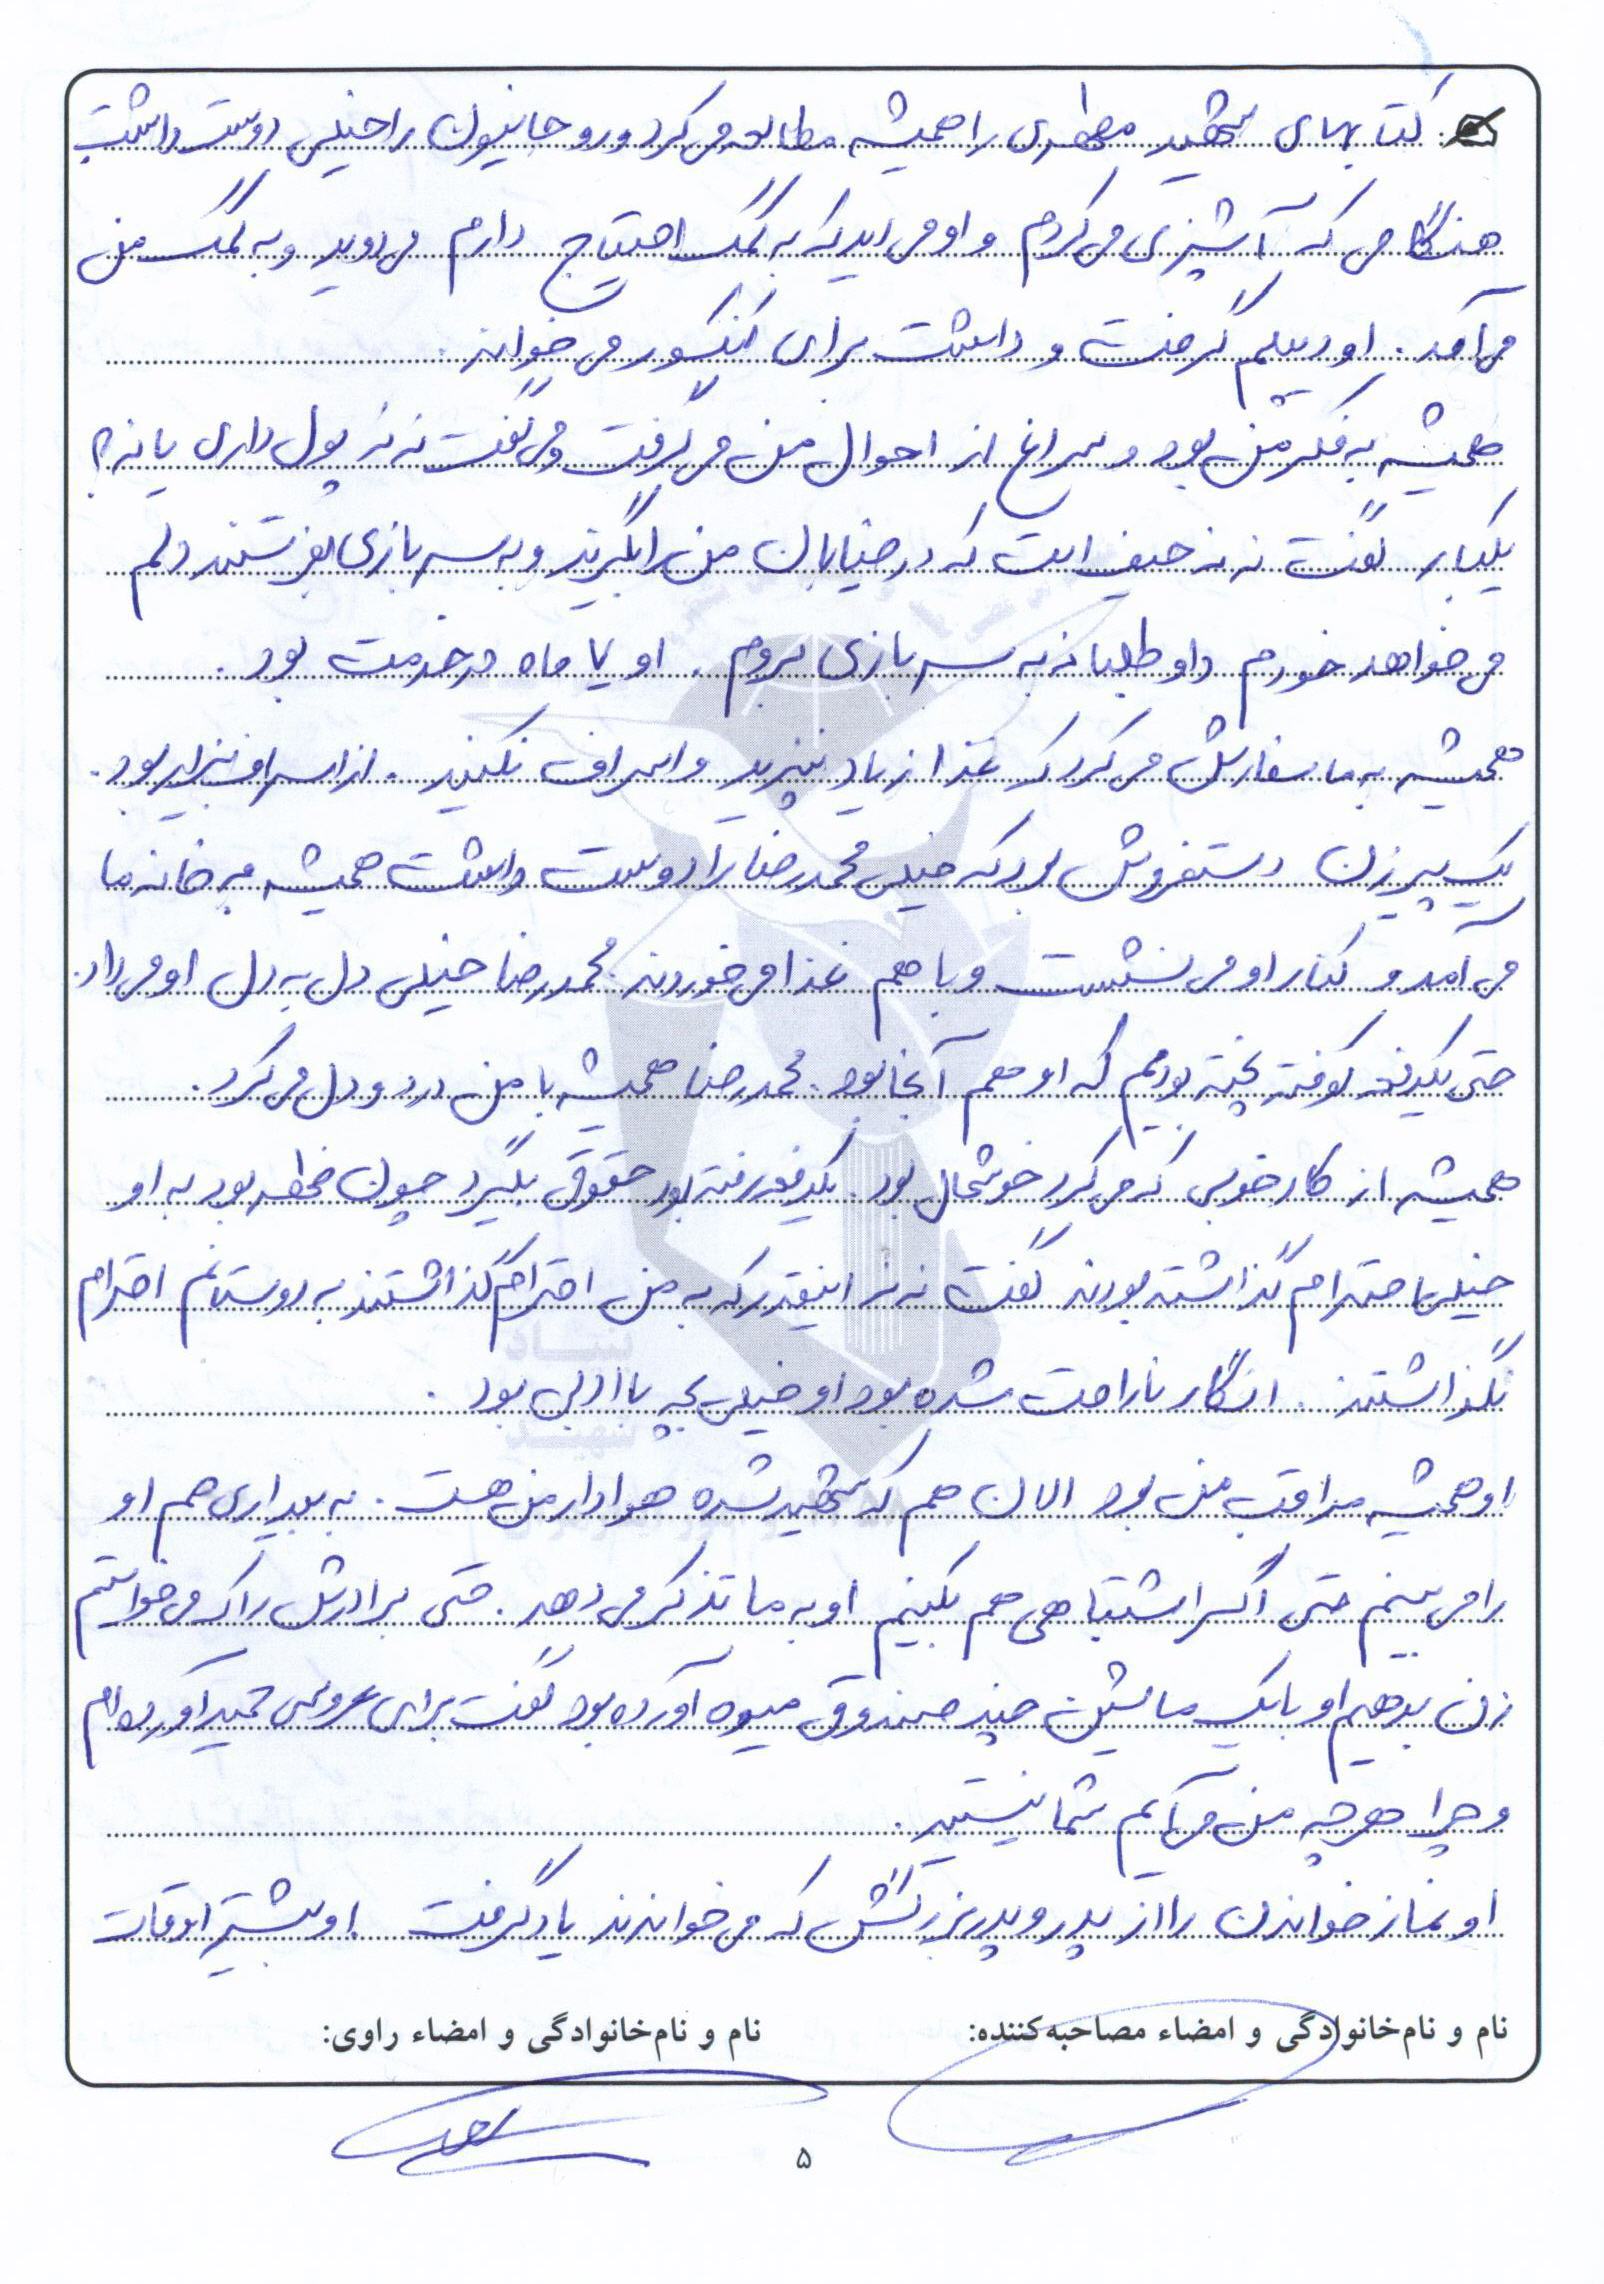 کتابهای شهید مطهری را همیشه مطالعه می کرد و روحانیون را خیلی دوست داشت
هنگامی که آشپزی می کردم و او می دید که به کمک احتیاج دارم می دوید و به کمک من
می آمد. او دیپلم گرفت و داشت برای کنکور می خواند.
همیشه به فکر من بود و سراغ از احوال من می گرفت و می گفت ننه پول داری یا نه؟
یکبار گفت ننه حیف است که در خیابان من را بگیرند و به سربازی بفرستند دلم
می خواهد خودم داوطلبانه به سربازی بروم. او ۷ ماه در خدمت بود.
همیشه به ما سفارش می کرد که غذا زیاد نپزید و اسراف نکنید. از اسراف بیزار بود.
یک پیرزن دستفروش بود که خیلی محمدرضا را دوست داشت همیشه به خانه ما
می آمد و کنار او می نشست و با هم غذا می خوردند. محمدرضا خیلی دل به دل او می داد.
حتی یکدفعه کوفته پخته بودیم که او هم آنجا بود. محمدرضا همیشه با من درد و دل می کرد.
همیشه از کار خوبی که می کرد خوشحال بود. یکدفعه رفته بود حقوق بگیرد چون محصل بود به او
خیلی احترام گذاشته بودند گفت ننه اینقدر که به من احترام گذاشتند به دوستانم احترام
نگذاشتند. انگار ناراحت شده بود او خیلی بچه با ادبی بود.
او همیشه مراقب من بود الان هم که شهید شده هوادار من هست. به بیداری هم او
را می بینم حتی اگر اشتباهی هم بکنیم او به ما تذکر می دهد. حتی برادرش را که می خواستیم
زن بدهیم او با یک ماشین چند صندوق میوه آورده بود گفت برای عروسی حمید آورده ام
و چرا هرچه من می آیم شما نیستید.
او نماز خواندن را از پدر و پدربزرگش که می خواندند یاد گرفت. او بیشتر اوقات
نام و نام‌خانوادگی و امضاء مصاحبه‌کننده: نام و نام‌خانوادگی و امضاء راوی:
۵